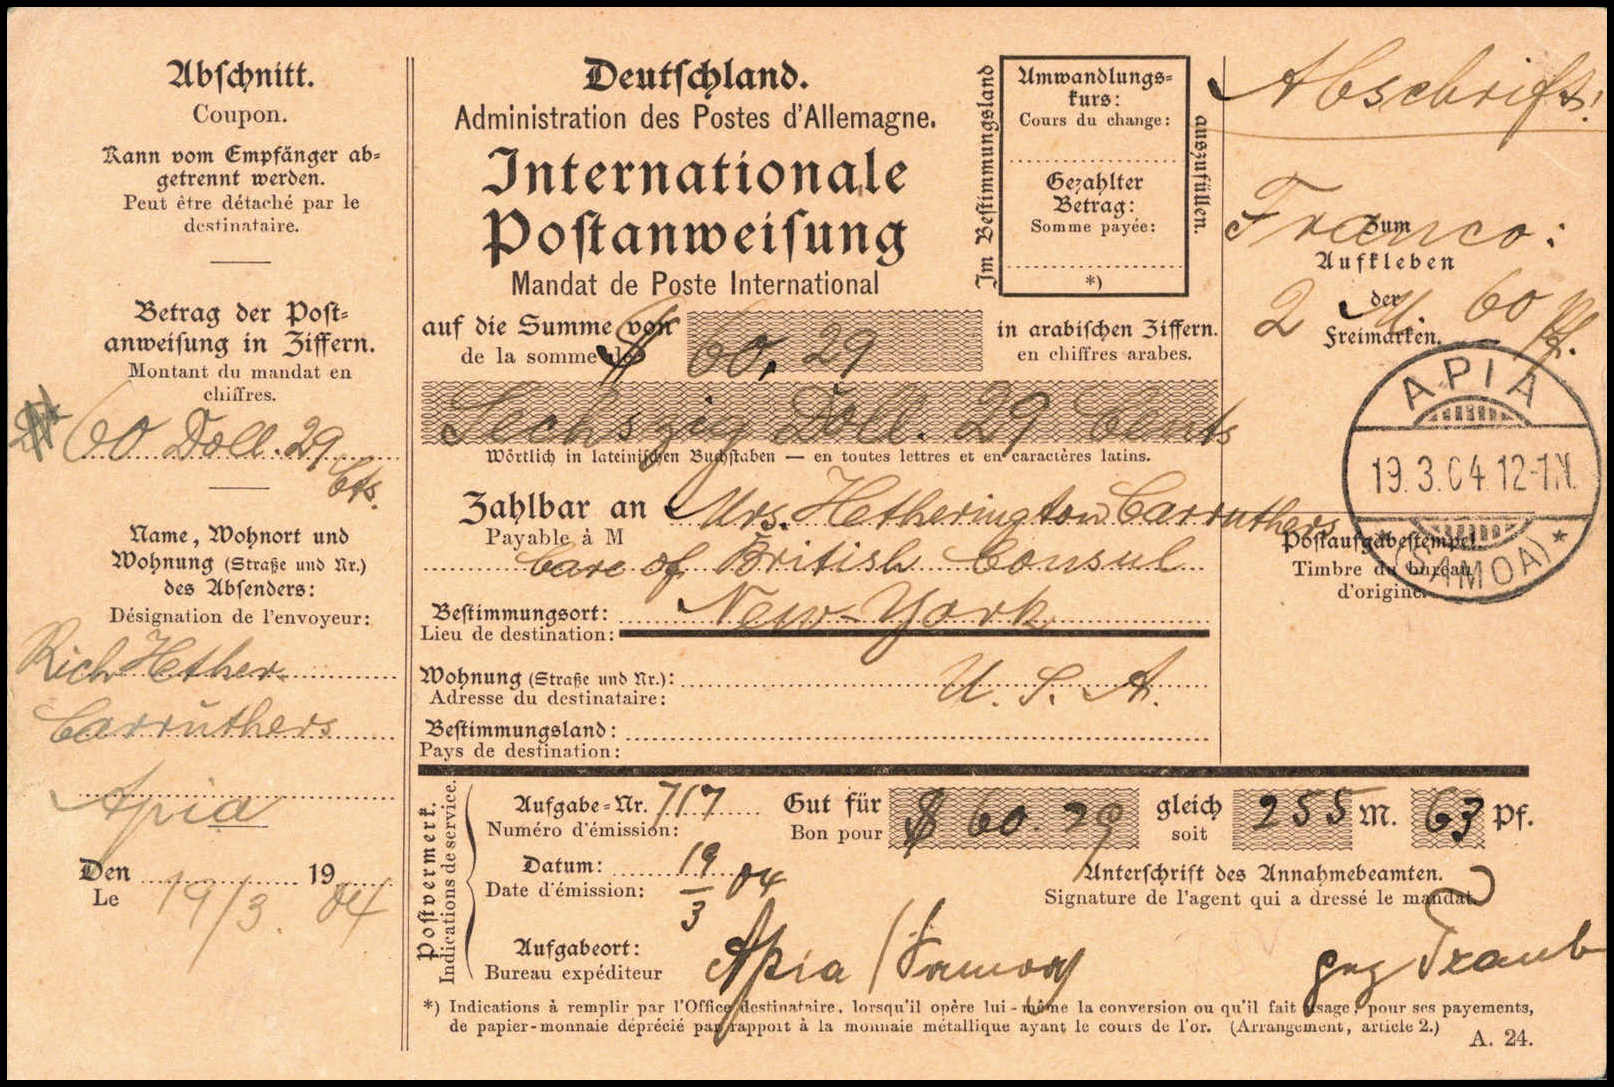 Abschnitt.
Coupon.
Kann vom Empfänger ab-
getrennt werden.
Peut être détaché par le
destinataire.
Betrag der Post-
anweisung in Ziffern.
Montant du mandat en
chiffres.
60 Doll. 29
Cts.
Name, Wohnort und
Wohnung (Straße und Nr.)
des Absenders:
Désignation de l'envoyeur:
Rich Hether-
Carruthers
Apia
Den 19/3. 1904
Le
Deutschland.
Administration des Postes d'Allemagne.
Internationale
Postanweisung
Mandat de Poste International
Im Bestimmungsland
Umwandlungs-
kurs:
Cours du change:
Gezahlter
Betrag:
Somme payée:
*)
auszufüllen.
auf die Summe von $ 60,29 in arabischen Ziffern.
de la somme de en chiffres arabes.
Sechszig Doll. 29 Cents
Wörtlich in lateinischen Buchstaben — en toutes lettres et en caractères latins.
Zahlbar an Mrs. Hetherington Carruthers
Payable à M
Care of British Consul
Bestimmungsort: New-York
Lieu de destination:
Wohnung (Straße und Nr.): U. S. A.
Adresse du destinataire:
Bestimmungsland:
Pays de destination:
Abschrift.
Franco:
2 M. 60 Pf.
Zum
Aufkleben
der
Freimarken.
APIA
19.3.04.12-1N.
(SAMOA)
Postaufgabestempel.
Timbre du bureau
d'origine.
Postvermerk.
Indications de service.
Aufgabe-Nr. 717 Gut für $ 60.29 gleich 255 M. 63 Pf.
Numéro d'émission: Bon pour soit
Datum: 19/3 04
Date d'émission:
Unterschrift des Annahmebeamten.
Signature de l'agent qui a dressé le mandat.
Aufgabeort: Apia (Samoa)
Bureau expéditeur
gez Traub
*) Indications à remplir par l'Office destinataire, lorsqu'il opère lui-même la conversion ou qu'il fait usage, pour ses payements,
de papier-monnaie déprécié par rapport à la monnaie métallique ayant le cours de l'or. (Arrangement, article 2.)
A. 24.